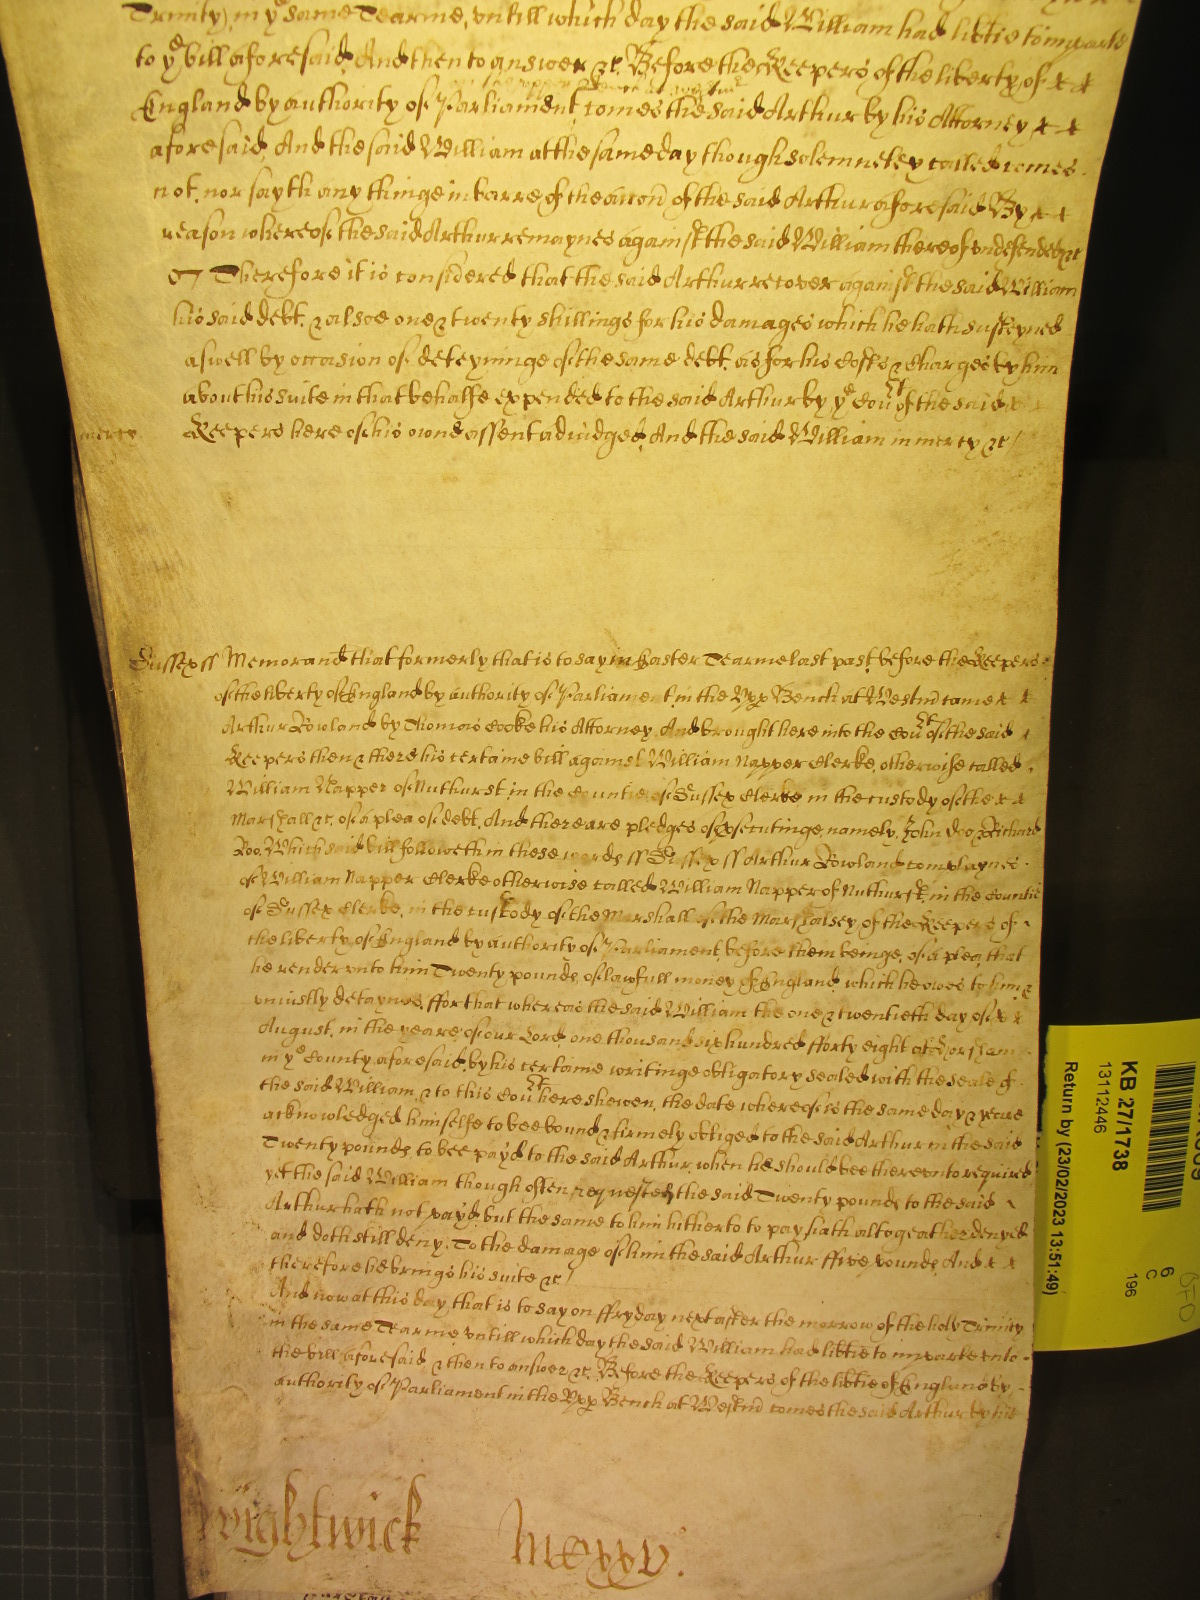 Trinity) in ye same Tearme, untill which day the said William had libtie to imparle
to ye bill aforesaid, And then to answer &c. Before the Keepers of the liberty of
England by authority of Parliament, comes the said Arthur by his Attorney
aforesaid, And the said William at the same day though solemneley called comes
not, nor sayth any thinge in barre of the accon of the said Arthur aforesaid By
reason whereof the said Arthur remaynes against the said William thereof undefended &c
Therefore it is considered that the said Arthur recover against the said William
his said debt, & alsoe one & twenty shillings for his damages which he hath susteyned
aswell by occasion of deteyninge of the same debt, as for his Costs & Charges by him
about his suite in that behalfe expended to the said Arthur by ye Cout of the said
mercy Keepers here of his owne assent adiudged, And the said William in mercy &c
Sussex ss Memorand that formerly that is to say in Easter Tearme last past, before the Keepers
of the liberty of England by authority of Parliament in the Upp Bench at Westm came
Arthur Rowland by Thomas Cooke his Attorney, And brought here into the Cout of the said
Keepers then & there his certaine bill against William Napper Clerke, otherwise called
William Napper of Nuthurst in the Countie of Sussex Clerke in the custody of the
Marshall &c. of a plea of debt, And there are pledges of psecutinge, namely, John Doo, Richard
Roo, Which said bill followeth in these words ss Sussex ss Arthur Rowland complaynes
of William Napper Clerke otherwise called William Napper of Nuthurst, in the Countie
of Sussex Clerke, in the custody of the Marshall of the Marshalsey, of the Keepers of
the liberty of England by authority of Parliament, before them beinge, of a plea, that
he render unto him Twenty pounds, of lawfull money of England, which he owes to him &
uniustly detaynes, ffor that whereas the said William the one & twentieth day of
August, in the yeare of our Lord, one thousand six hundred fforty eight at Horsham
in ye County aforesaid, by his certaine writinge obligatory sealed with the seale of
the said William, & to this Cout here shewen, the date whereof is the same day & yeare
acknowledged himselfe to bee bound & firmely obliged to the said Arthur in the said
Twenty pounds, to bee payd to the said Arthur, when he should bee thereunto required
yet the said William though often requested, the said Twenty pounds to the said
Arthur hath not payd, but the same to him hitherto to pay hath altogeather denyed
and doth still deny, To the damage of him the said Arthur ffive pounds, And
therefore he brings his suite &c
And now at this day, that is to say on ffryday next after the morrow of the holy Trinity
in the same Tearme, untill which day the said William had libtie to imparle unto
the bill aforesaid, & then to answer &c. Before the Keepers of the libtie of England by
authority of Parliament in the Upp Bench at Westm comes the said Arthur by his
Wightwick
KB 27/1738
13112446
Return by (23/02/2023 13:51:49)
6
C
196